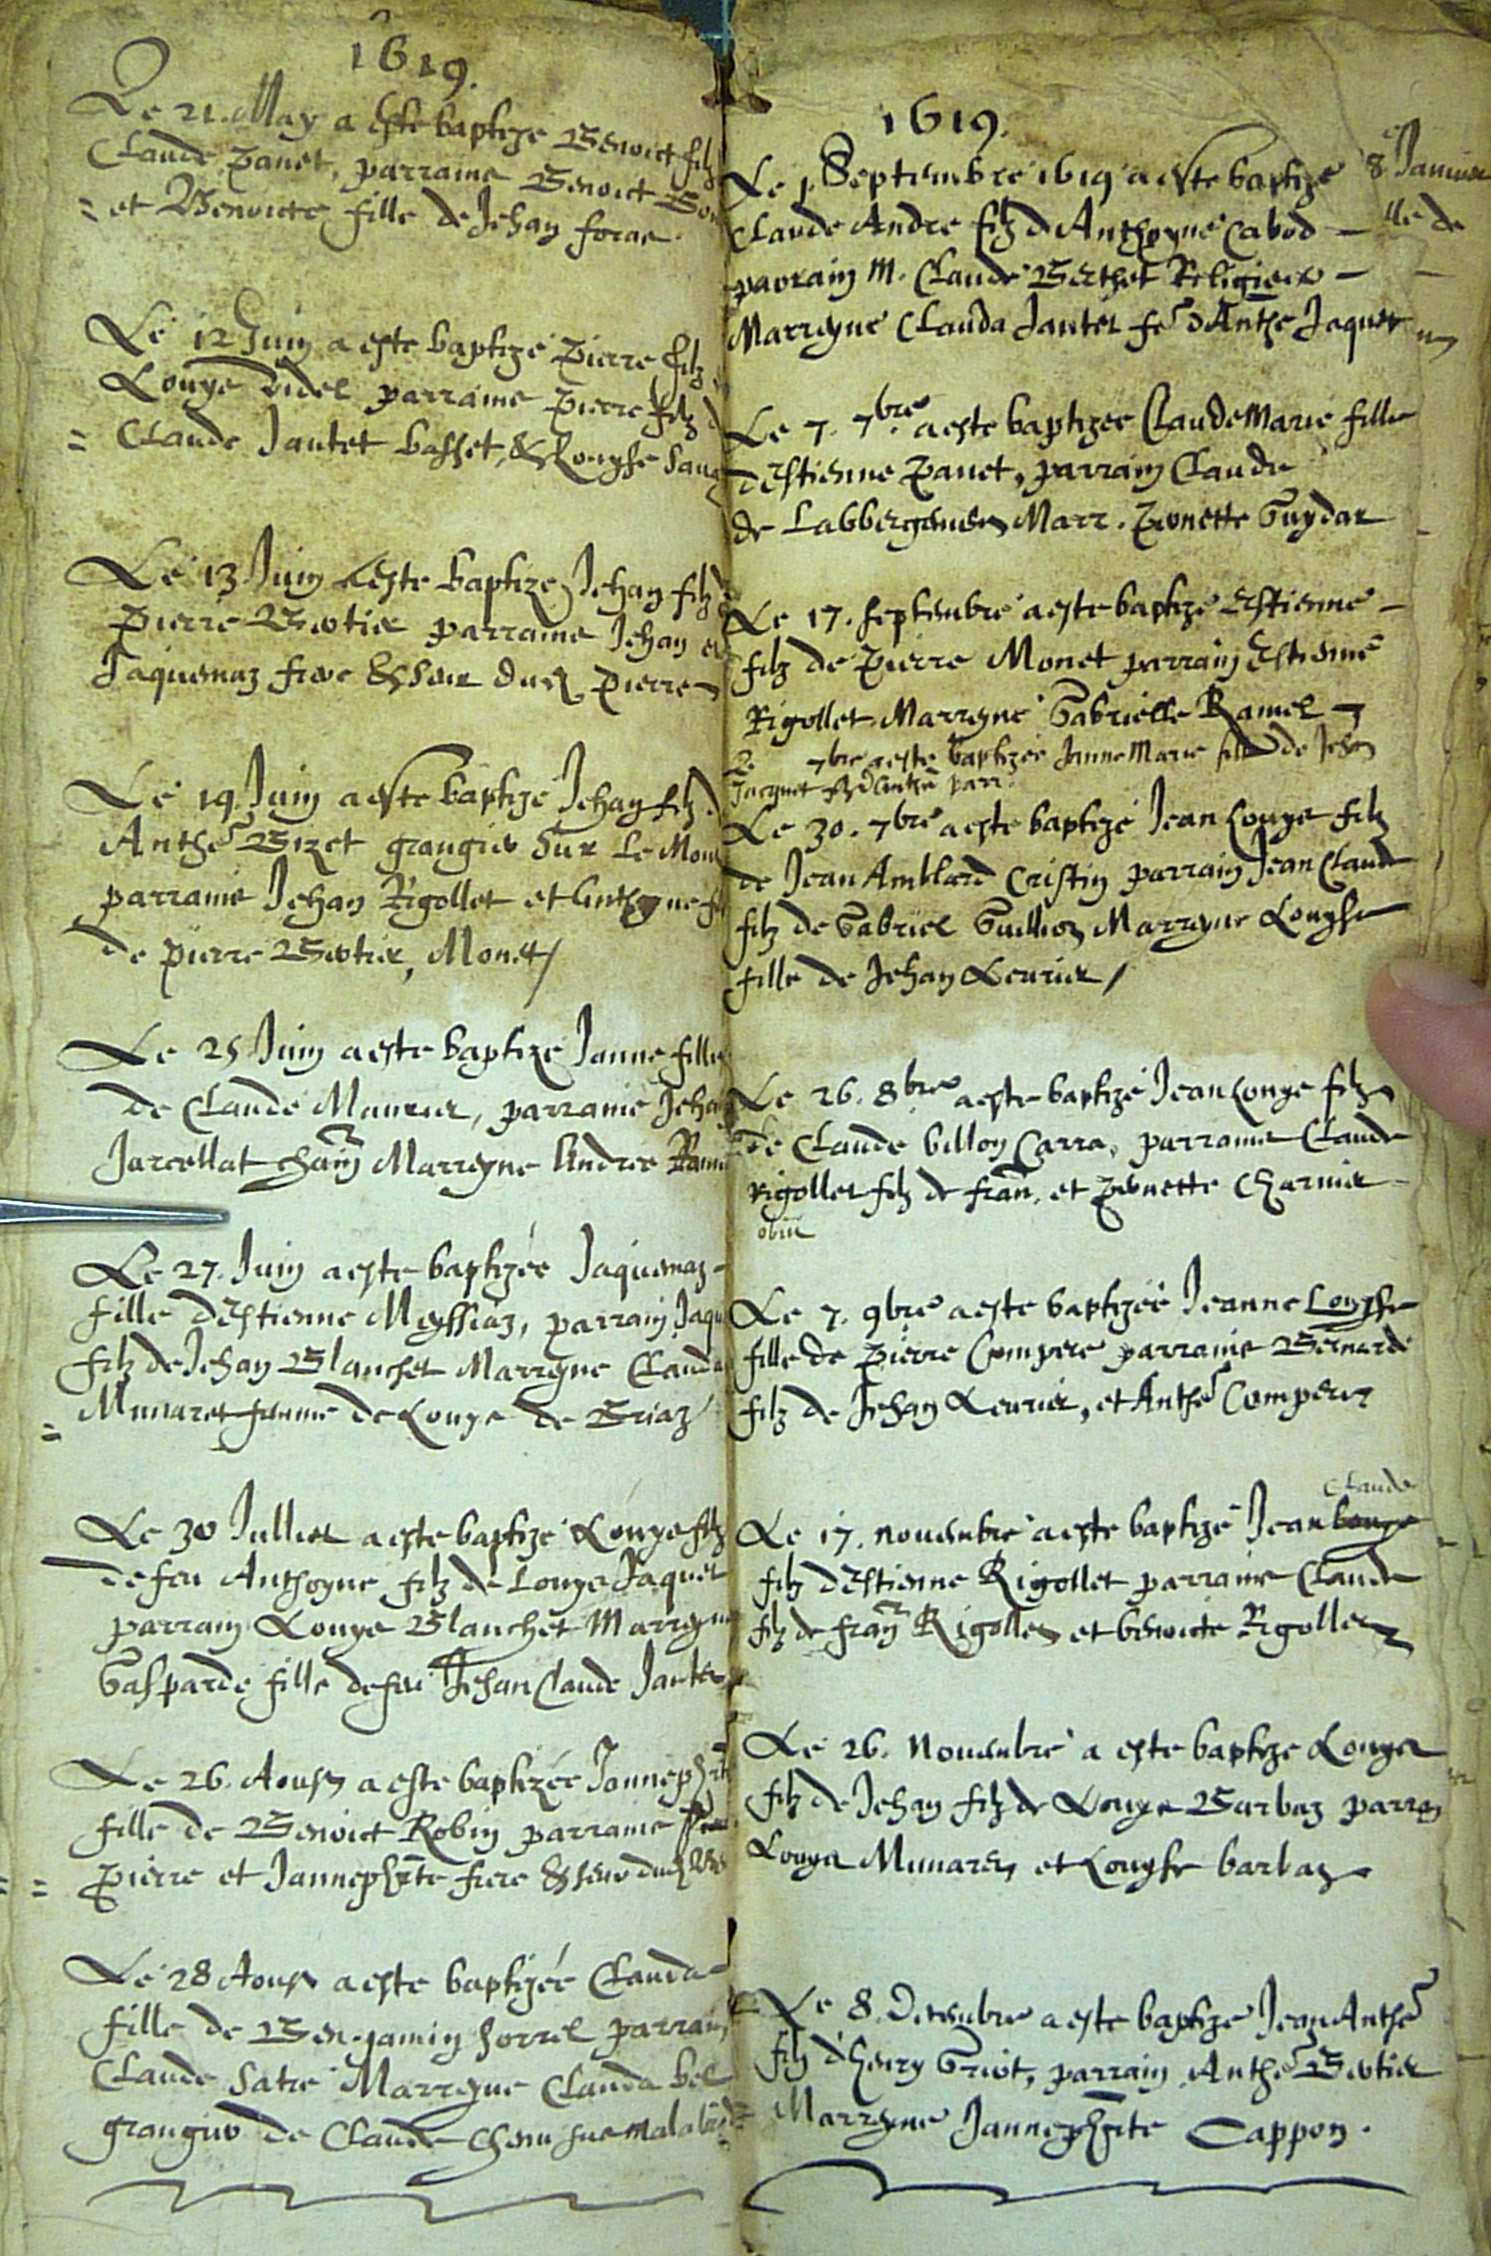 1619.
Le 21. May a este baptize Benoict filz
Claude Panet, parraine Benoict
= et Benoicte fille de Jehan foras.
Le 12 Juin a este baptize Pierre filz
Louye Videl parraine Pierre filz d
= Claude Jantet basset, & Louyse
Le 13 Juin a este baptize Jehan filz
Pierre Bertier parraine Jehan et
Jaquemaz frere & seur dud. Pierre
Le 19. Juin a este baptize Jehan filz d
Anthe Bizet grangier sur le Mon
parraine Jehan Rigollet et Anthoyne
de Pierre Bertier, Monet /
Le 25 Juin a este baptize Janne fille
de Claude Maurier, parraine Jehan
Jarcellat Marreyne Andree
Le 27. Juin a este baptizée Jaquemaz
fille d'Estienne Meyssiaz, parrain Jaqu
filz de Jehan Blanchet Marreyne Claude
= Munaret femme de Louye de Briaz
Le 30 Julliet a este baptize Louye filz
de feu Anthoyne filz de Louye Jaquet
parrain Louye Blanchet Marreyne
Gasparde fille de feu Jehan Claude Jantet
Le 26. Aoust a este baptizée
fille de Benoict Robin parraine
= Pierre et frere & seur dud.
Le 28 Aoust a este baptizée Clauda
fille de Benjamin sorrel parrain
Claude Satre Marreyne Clauda bel
grangier de Claude
1619.
Le 1. Septembre 1619 a este baptize
Claude Andre filz d'Anthoyne Cabod —
parrain M. Claude Berthet Religieux —
Marreyne Clauda Jantet fe d'Anthe Jaquet
Le 7. 7bre a este baptizee Claude Marie fille
d'Estienne Panet, parrain Claude
de Labbergement Marr. Pernette Guydar
Le 17. septembre a este baptizé Estienne —
filz de Pierre Monet parrain Estienne
Rigollet Marreyne Gabrielle Ramel
Le 7bre a este baptizée Janne Marie fille de Jehan
Jacquet parr.
Le 30. 7bre a este baptizé Jean Louye filz
de Jean Amblard Cristin parrain Jean Claude
filz de Gabriel Guillion Marreyne Louyse
fille de Jehan Levrier /
Le 26. 8bre a este baptizé Jean Louye filz
de Claude billon Carra, parraine Claude
Rigollet filz de fran, et Pernette Charnier
obiit
Le 7. 9bre a este baptizée Jeanne Louyse
fille de Pierre Compere parraine Bernarde
filz de Jehan Levrier, et Anthe Compere
Claude
Le 17. novembre a este baptizé Jean Louye
filz d'Estienne Rigollet parraine Claude
filz de fran Rigollet et benoicte Rigollet
Le 26. Novembre a este baptize Louye
filz de Jehan filz de Louye Barbaz parrain
Louye Munaret, et Louyse barbaz
Le 8. Decembre a este baptizé Jean Anthe
filz d'henry Griot, parrain Anthe Bertier
Marreyne Cappon.
8 Janvier
lle de